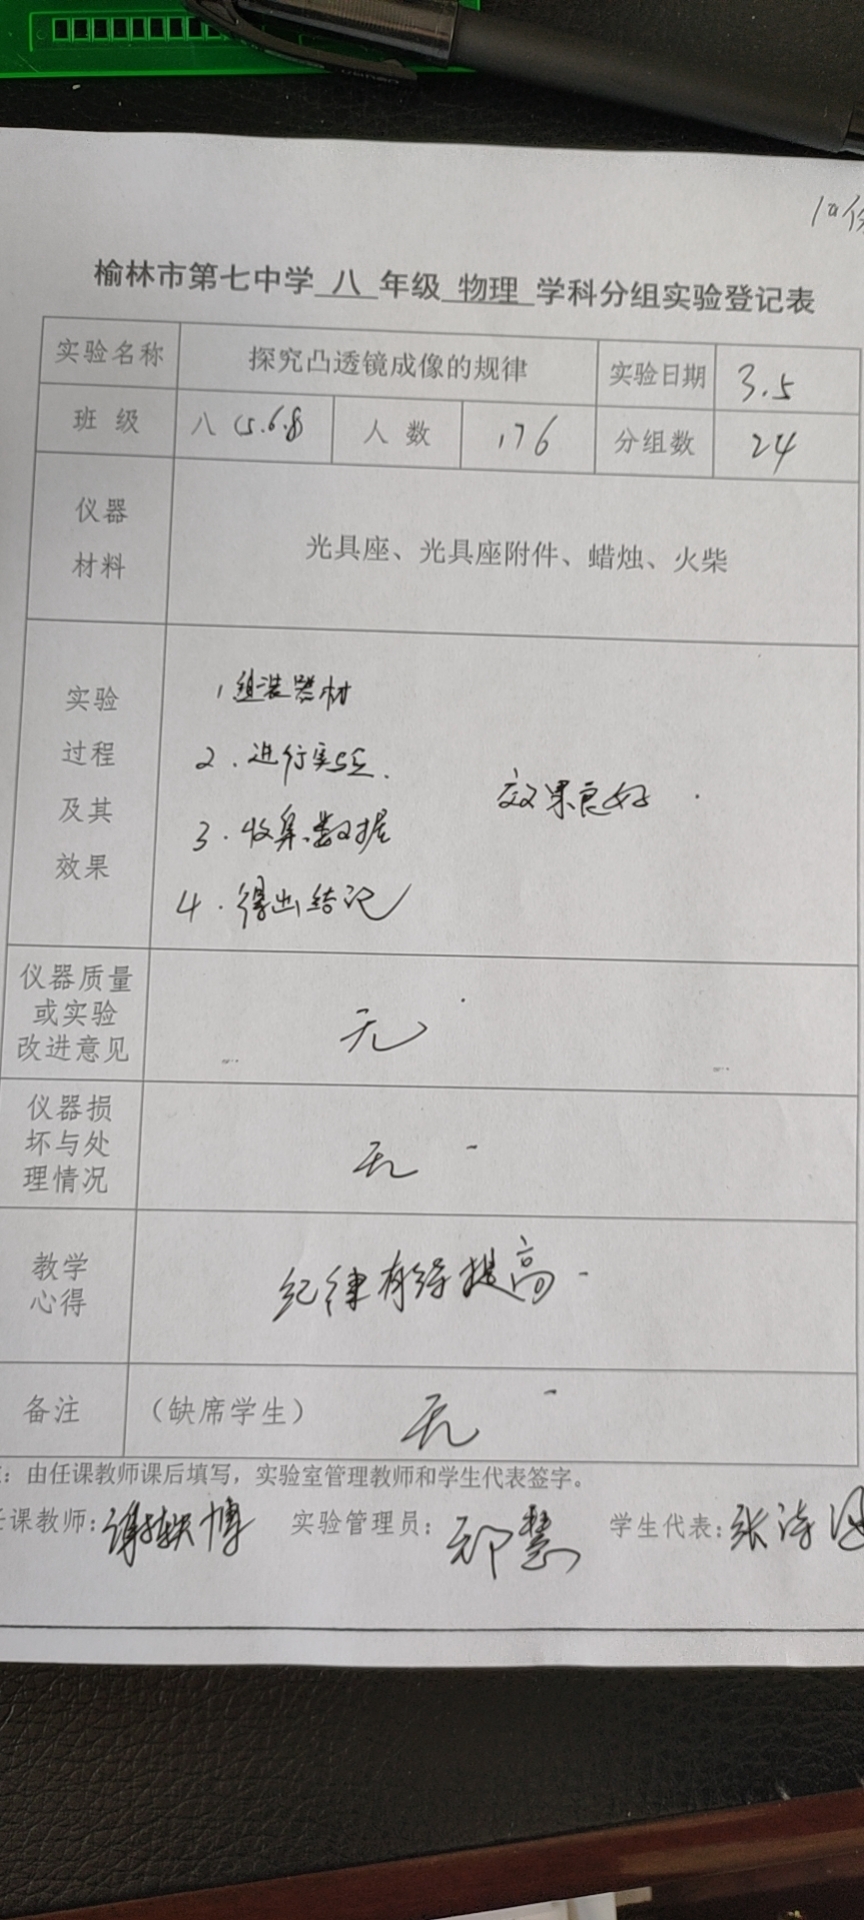 榆林市第七中学 八 年级 物理 学科分组实验登记表
实验名称 探究凸透镜成像的规律 实验日期 3.5
班 级 八(5.6.8) 人 数 176 分组数 24
仪器
材料
光具座、光具座附件、蜡烛、火柴
实验
过程
及其
效果
1 组装器材
2．进行实验．
3．收集数据
4．得出结论
效果良好．
仪器质量
或实验
改进意见
无
仪器损
坏与处
理情况
无
教学
心得
纪律有待提高
备注 （缺席学生） 无
：由任课教师课后填写，实验室管理教师和学生代表签字。
任课教师: 实验管理员: 邓慧 学生代表: 张诗